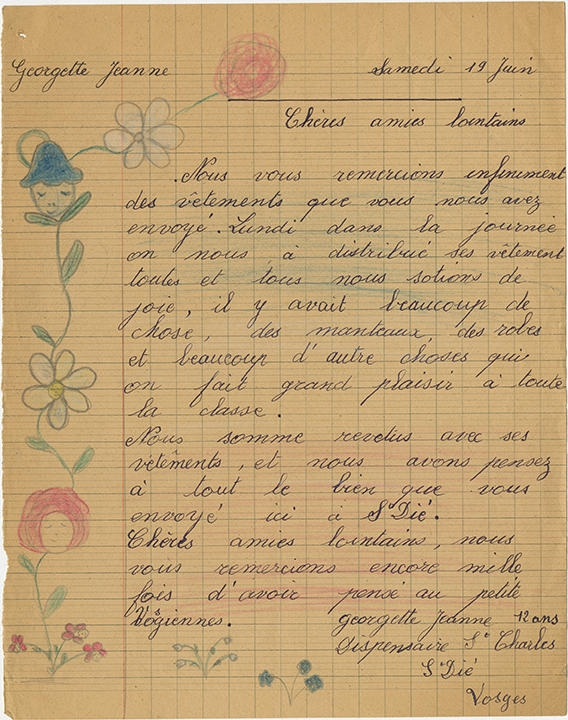 Georgette Jeanne Samedi 19 Juin
Chères amies lointains
Nous vous remercions infiniment
des vêtements que vous nous avez
envoyé. Lundi dans la journée
on nous à distribué ses vêtement
toutes et tous nous sotions de
joie, il y avait beaucoup de
chose, des manteaux, des robes
et beaucoup d'autre choses qui
on fait grand plaisir à toute
la classe.
Nous somme revetus avec ses
vêtements, et nous avons pensez
à tout le bien que vous
envoyé ici à St Dié.
Chères amies lointains, nous
vous remercions encore mille
fois d'avoir pensé au petite
Vôgiennes. georgette Jeanne 12 ans
Dispensaire St Charles
St Dié
Vosges